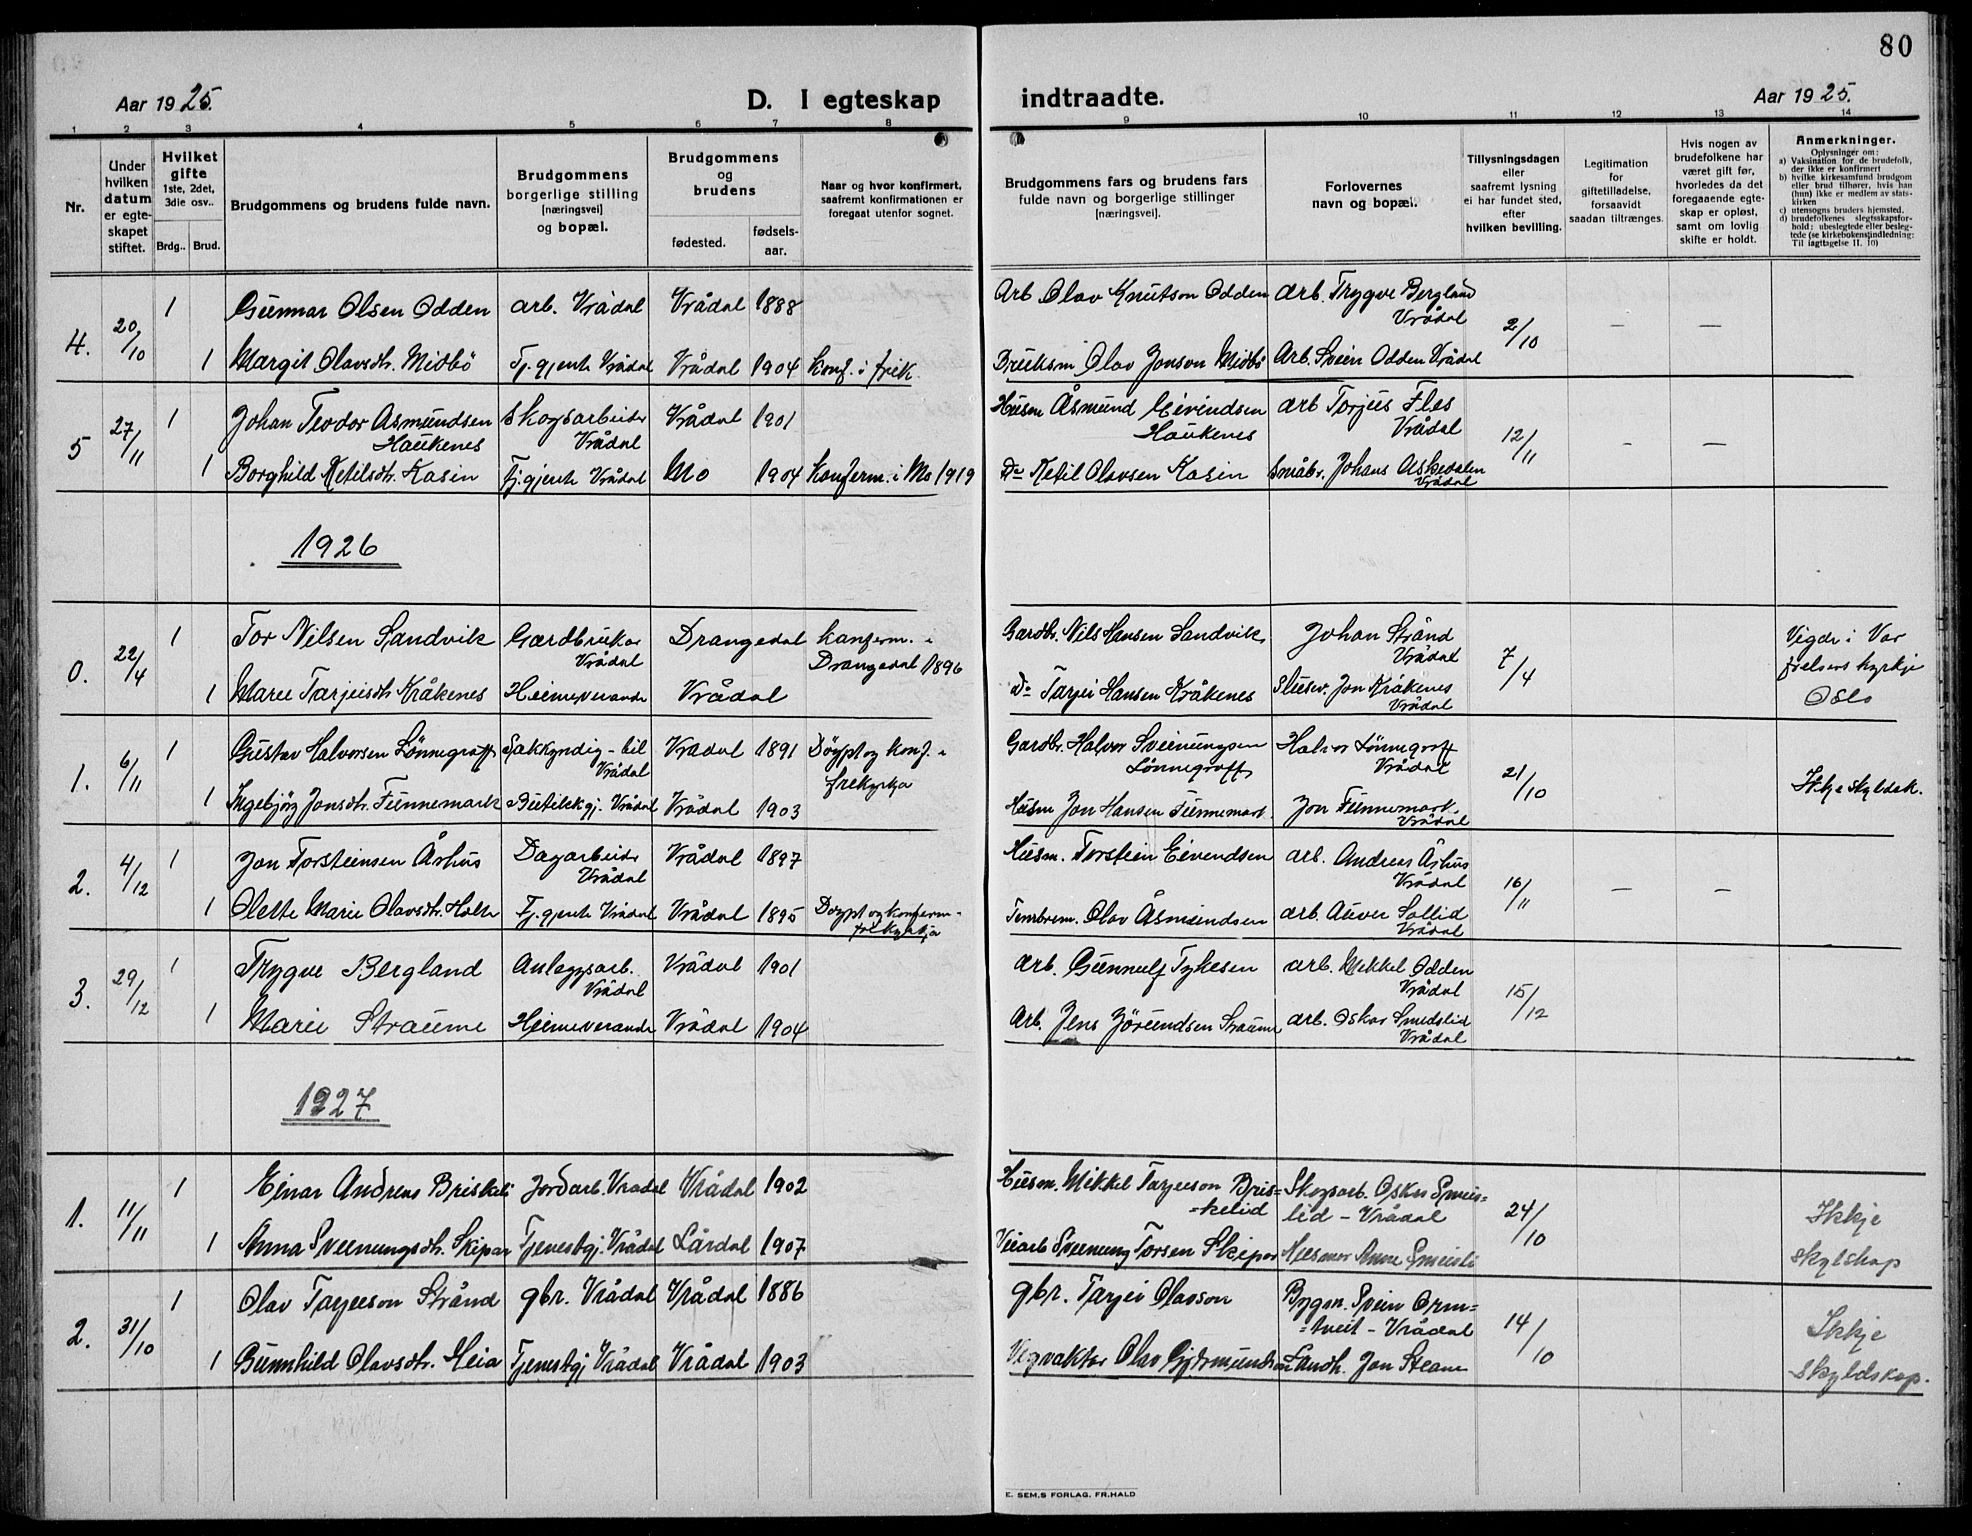 80
Aar 1925.
D. I egteskap indtraadte.
Aar 1925.
1 2 3 4 5 6 7 8 9 10 11 12 13 14
Nr.
Under hvilken datum er egteskapet stiftet.
Hvilket gifte 1ste, 2det, 3die osv..
Brdg.. Brud.
Brudgommens og brudens fulde navn.
Brudgommens borgerlige stilling [næringsvei] og bopæl.
Brudgommens og brudens
fødested. fødsels-aar.
Naar og hvor konfirmert, saafremt konfirmationen er foregaat utenfor sognet.
Brudgommens fars og brudens fars fulde navn og borgerlige stillinger [næringsvei].
Forlovernes navn og bopæl.
Tillysningsdagen eller saafremt lysning ei har fundet sted, efter hvilken bevilling.
Legitimation for giftetilladelse, forsaavidt saadan tiltrænges.
Hvis nogen av brudefolkene har været gift før, hvorledes da det foregaaende egteskap er opløst, samt om lovlig skifte er holdt.
Anmerkninger.
Oplysninger om:
a) Vaksination for de brudefolk, der ikke er konfirmert
b) hvilke kirkesamfund brudgom eller brud tilhører, hvis han (hun) ikke er medlem av statskirken
c) utensogns bruders hjemsted.
d) brudefolkenes slegtsskapsforhold: ubeslegtede eller beslegtede (se kirkebokens indledning: Til iagttagelse II. 10)
4. 20/10 1 Gunnar Olsen Odden arb. Vrådal Vrådal 1888 Arb Olav Knutson Odden arb. Trygve Bergland Vrådal 2/10 — —
1 Margit Olavsdtr. Midbö Tj.gjente Vrådal Vrådal 1904 konf. i frik. Bruksm Olav Jonson Midbö Arb. Svein Odden Vrådal
5 27/11 1 Johan Teodor Asmundsen Haukenes Skogsarbeider Vrådal Vrådal 1901 Husm Åsmund Eivindsen Haukenes arb Torjus Fles Vrådal 12/11 - —
1 Borghild Ketilsdtr. Kasin Tj.gjente Vrådal Mo 1904 Konferm. i Mo 1919 Do Ketil Olavsen Kasin Småbr. Johans Askedalen Vrådal
1926
0. 22/4 1 Tor Nilsen Sandvik Gardbrukar Vrådal Drangedal konferm. i Drangedal 1896 Gardbr. Nils Hansen Sandvik Johan Strånd Vrådal 7/4 Vigde i Vor frelsers kyrkje Oslo
1 Marie Tarjeisdtr Kråkenes Heimeverande Vrådal Do Tarjei Hansen Kråkenes Slusev. Jon Kråkenes Vrådal
1. 6/11 1 Gustav Halvorsen Lönnegraff Sakkyndig-bil Vrådal Vrådal 1891 Döypt og konf. i frekyrkja Gardbr. Halvor Sveinungsen Lönnegraff Halvor Lönnegraff Vrådal 21/10 Ikkje skyldsk.
1 Ingebjörg Jonsdtr. Funnemark Butikkgj. Vrådal Vrådal 1903 Husm Jon Hansen Funnemark. Jon Funnemark. Vrådal
2. 4/12 1 Jon Torsteinsen Århus Dagarbeider Vrådal Vrådal 1897 Husm. Torstein Eivendsen arb. Andreas Århus Vrådal 16/11 — —
1 Olette Marie Olavsdtr. Holte Tj.gjente Vrådal Vrådal 1895 Döypt og konferm. frekyrkja Tømbrem. Olav Åsmundsen arb. Auver Sollid Vrådal
3. 29/12 1 Trygve Bergland Anleggsarb. Vrådal Vrådal 1901 arb. Gunnulf Tykesen arb. Mikkel Odden Vrådal 15/12
1 Marie Straume Heimeverande Vrådal 1904 Arb. Jens Jörundsen Straume arb. Oskar Smedslid Vrådal
1927
1. 11/11 1 Einar Andreas Briskeli Jordarb. Vrådal Vrådal 1902 Husm. Mikkel Tarjeeson Bris=
=kelid Skogsarb. Oskar Smeis=
lid – Vrådal 24/10 Ikkje skylskap
1 Anna Sveinungsdtr. Skipar Tjenestgj. Vrådal Lårdal 1907 Veiarb Sveinung Torsen Skipar Husmor Anne Smeisli
2. 31/10 1 Olav Tarjeeson Strånd gbr. Vrådal Vrådal 1886 gbr. Tarjei Olavson Bygm. Svein Orm=
=tveit – Vrådal 14/10 Ikkje skyldskap.
1 Gunnhild Olavsdtr. Heia Tjenestgj Vrådal Vrådal 1903 Vegvaktar Olav Gjermundson Landh. Jon Steane
E. SEM.S FORLAG. FR.HALD